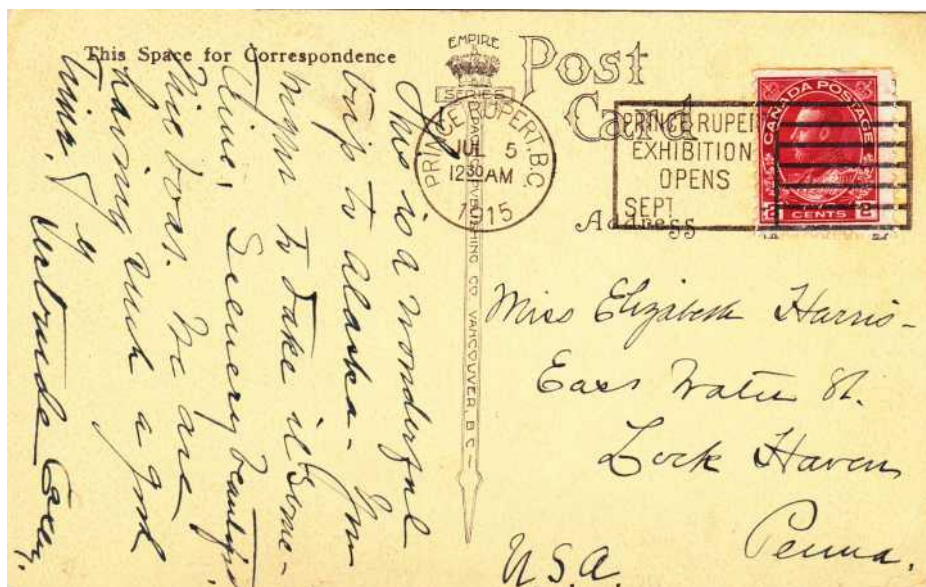 This Space for Correspondence
This is a wonderful
trip to Alaska - You
might to take it some-
time, Scenery beautiful
nice boat. We are
having such a good
time.
Gertrude
EMPIRE
SERIES
Post
Card
PRINCE RUPERT, B.C.
JUL 5
1230 AM
1915
PRINCE RUPER
EXHIBITION
OPENS
SEPT
CANADA POSTAGE
2 CENTS 2
Address
PUBLISHING CO VANCOUVER, B.C.
Miss Elizabeth Harris -
East Water St.
Lock Haven
Penna.
U.S.A.